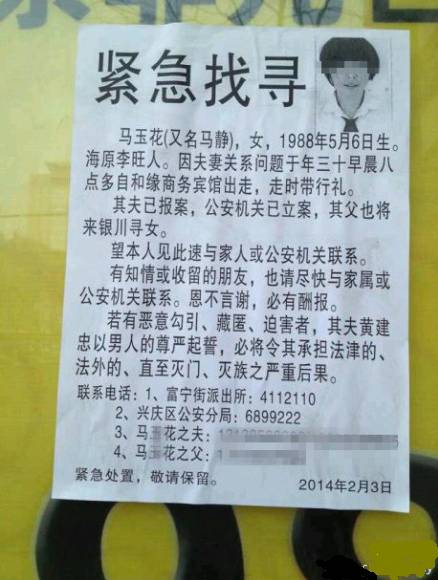 紧急找寻
马玉花(又名马静)，女，1988年5月6日生。
海原李旺人。因夫妻关系问题于年三十早晨八
点多自和缘商务宾馆出走，走时带行礼。
其夫已报案，公安机关已立案，其父也将
来银川寻女。
望本人见此速与家人或公安机关联系。
有知情或收留的朋友，也请尽快与家属或
公安机关联系。恩不言谢，必有酬报。
若有恶意勾引、藏匿、迫害者，其夫黄建
忠以男人的尊严起誓，必将令其承担法津的、
法外的、直至灭门、灭族之严重后果。
联系电话：1、富宁街派出所：4112110
2、兴庆区公安分局：6899222
3、马玉花之夫：
4、马玉花之父：
紧急处置，敬请保留。
2014年2月3日